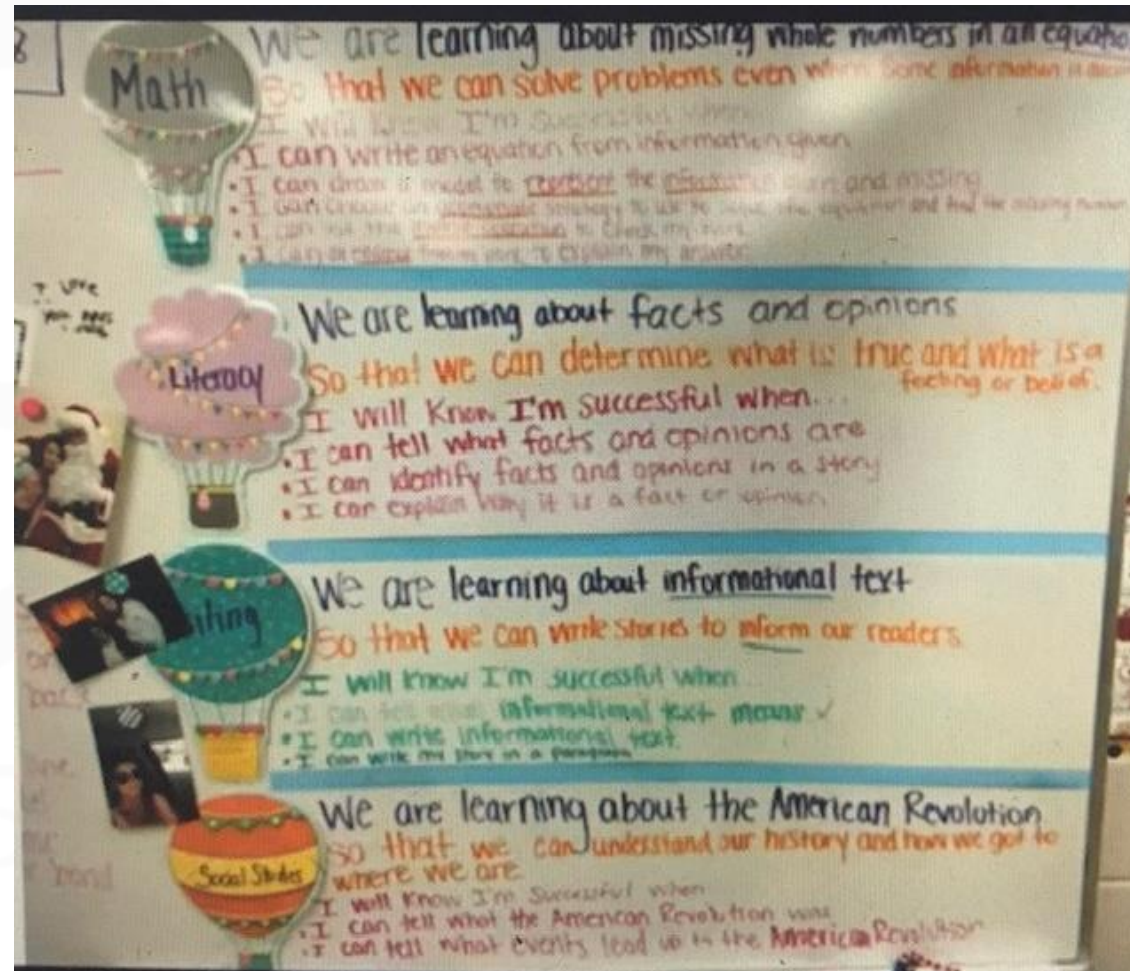 8
Math
We are learning about missing whole numbers in an equatio
So that we can solve problems even when some information is
I will know I'm successful when
• I can write an equation from information given
• I can draw a model to represent the information given and missing
• I can choose an strategy to use to solve the equation and find the missing number
• I can use the to check my work
• I can to explain my answer
I love
Literacy
We are learning about facts and opinions
So that we can determine what is true and what is a
feeling or belief.
I will know I'm successful when...
• I can tell what facts and opinions are
• I can identify facts and opinions in a story
• I can explain why it is a fact or opinion
iting
We are learning about informational text
So that we can write stories to inform our readers
I will know I'm successful when
• I can tell what informational text means ✓
• I can write informational text
• I can write my story in a paragraph
Social Studies
We are learning about the American Revolution
So that we can understand our history and how we got to
where we are
I will know I'm successful when
• I can tell what the American Revolution was
• I can tell what events lead up to the American Revolution